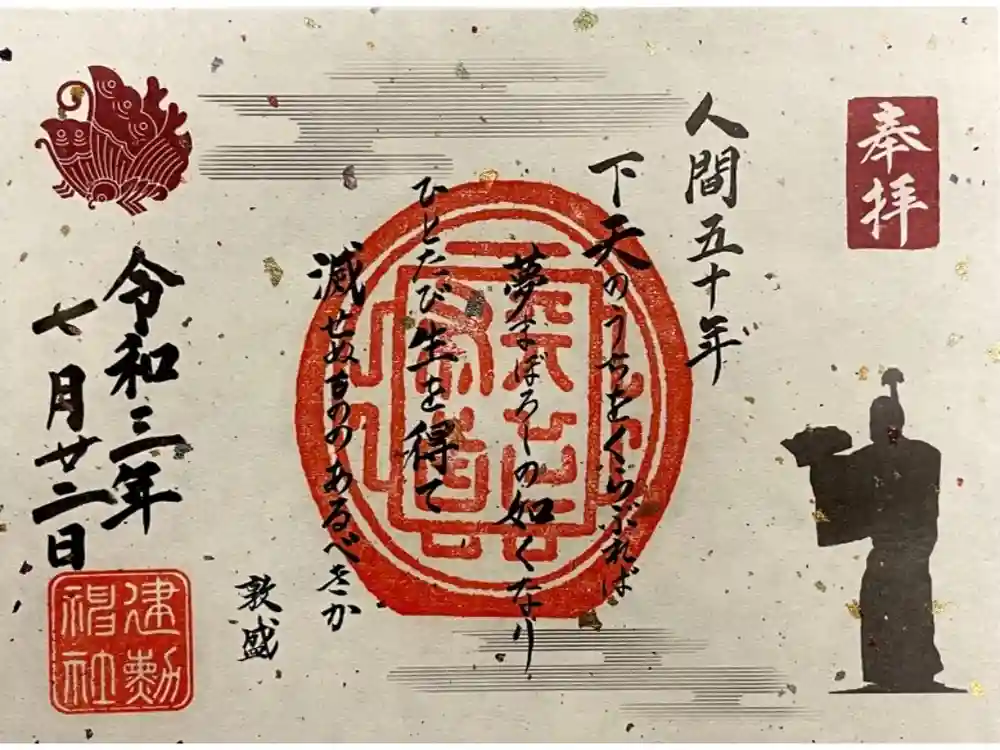 奉拝
人間五十年
下天のうちをくらぶれば
夢まぼろしの如くなり
ひとたび生を得て
滅せぬもののあるべきか
敦盛
令和三年
七月廿二日
建勲神社